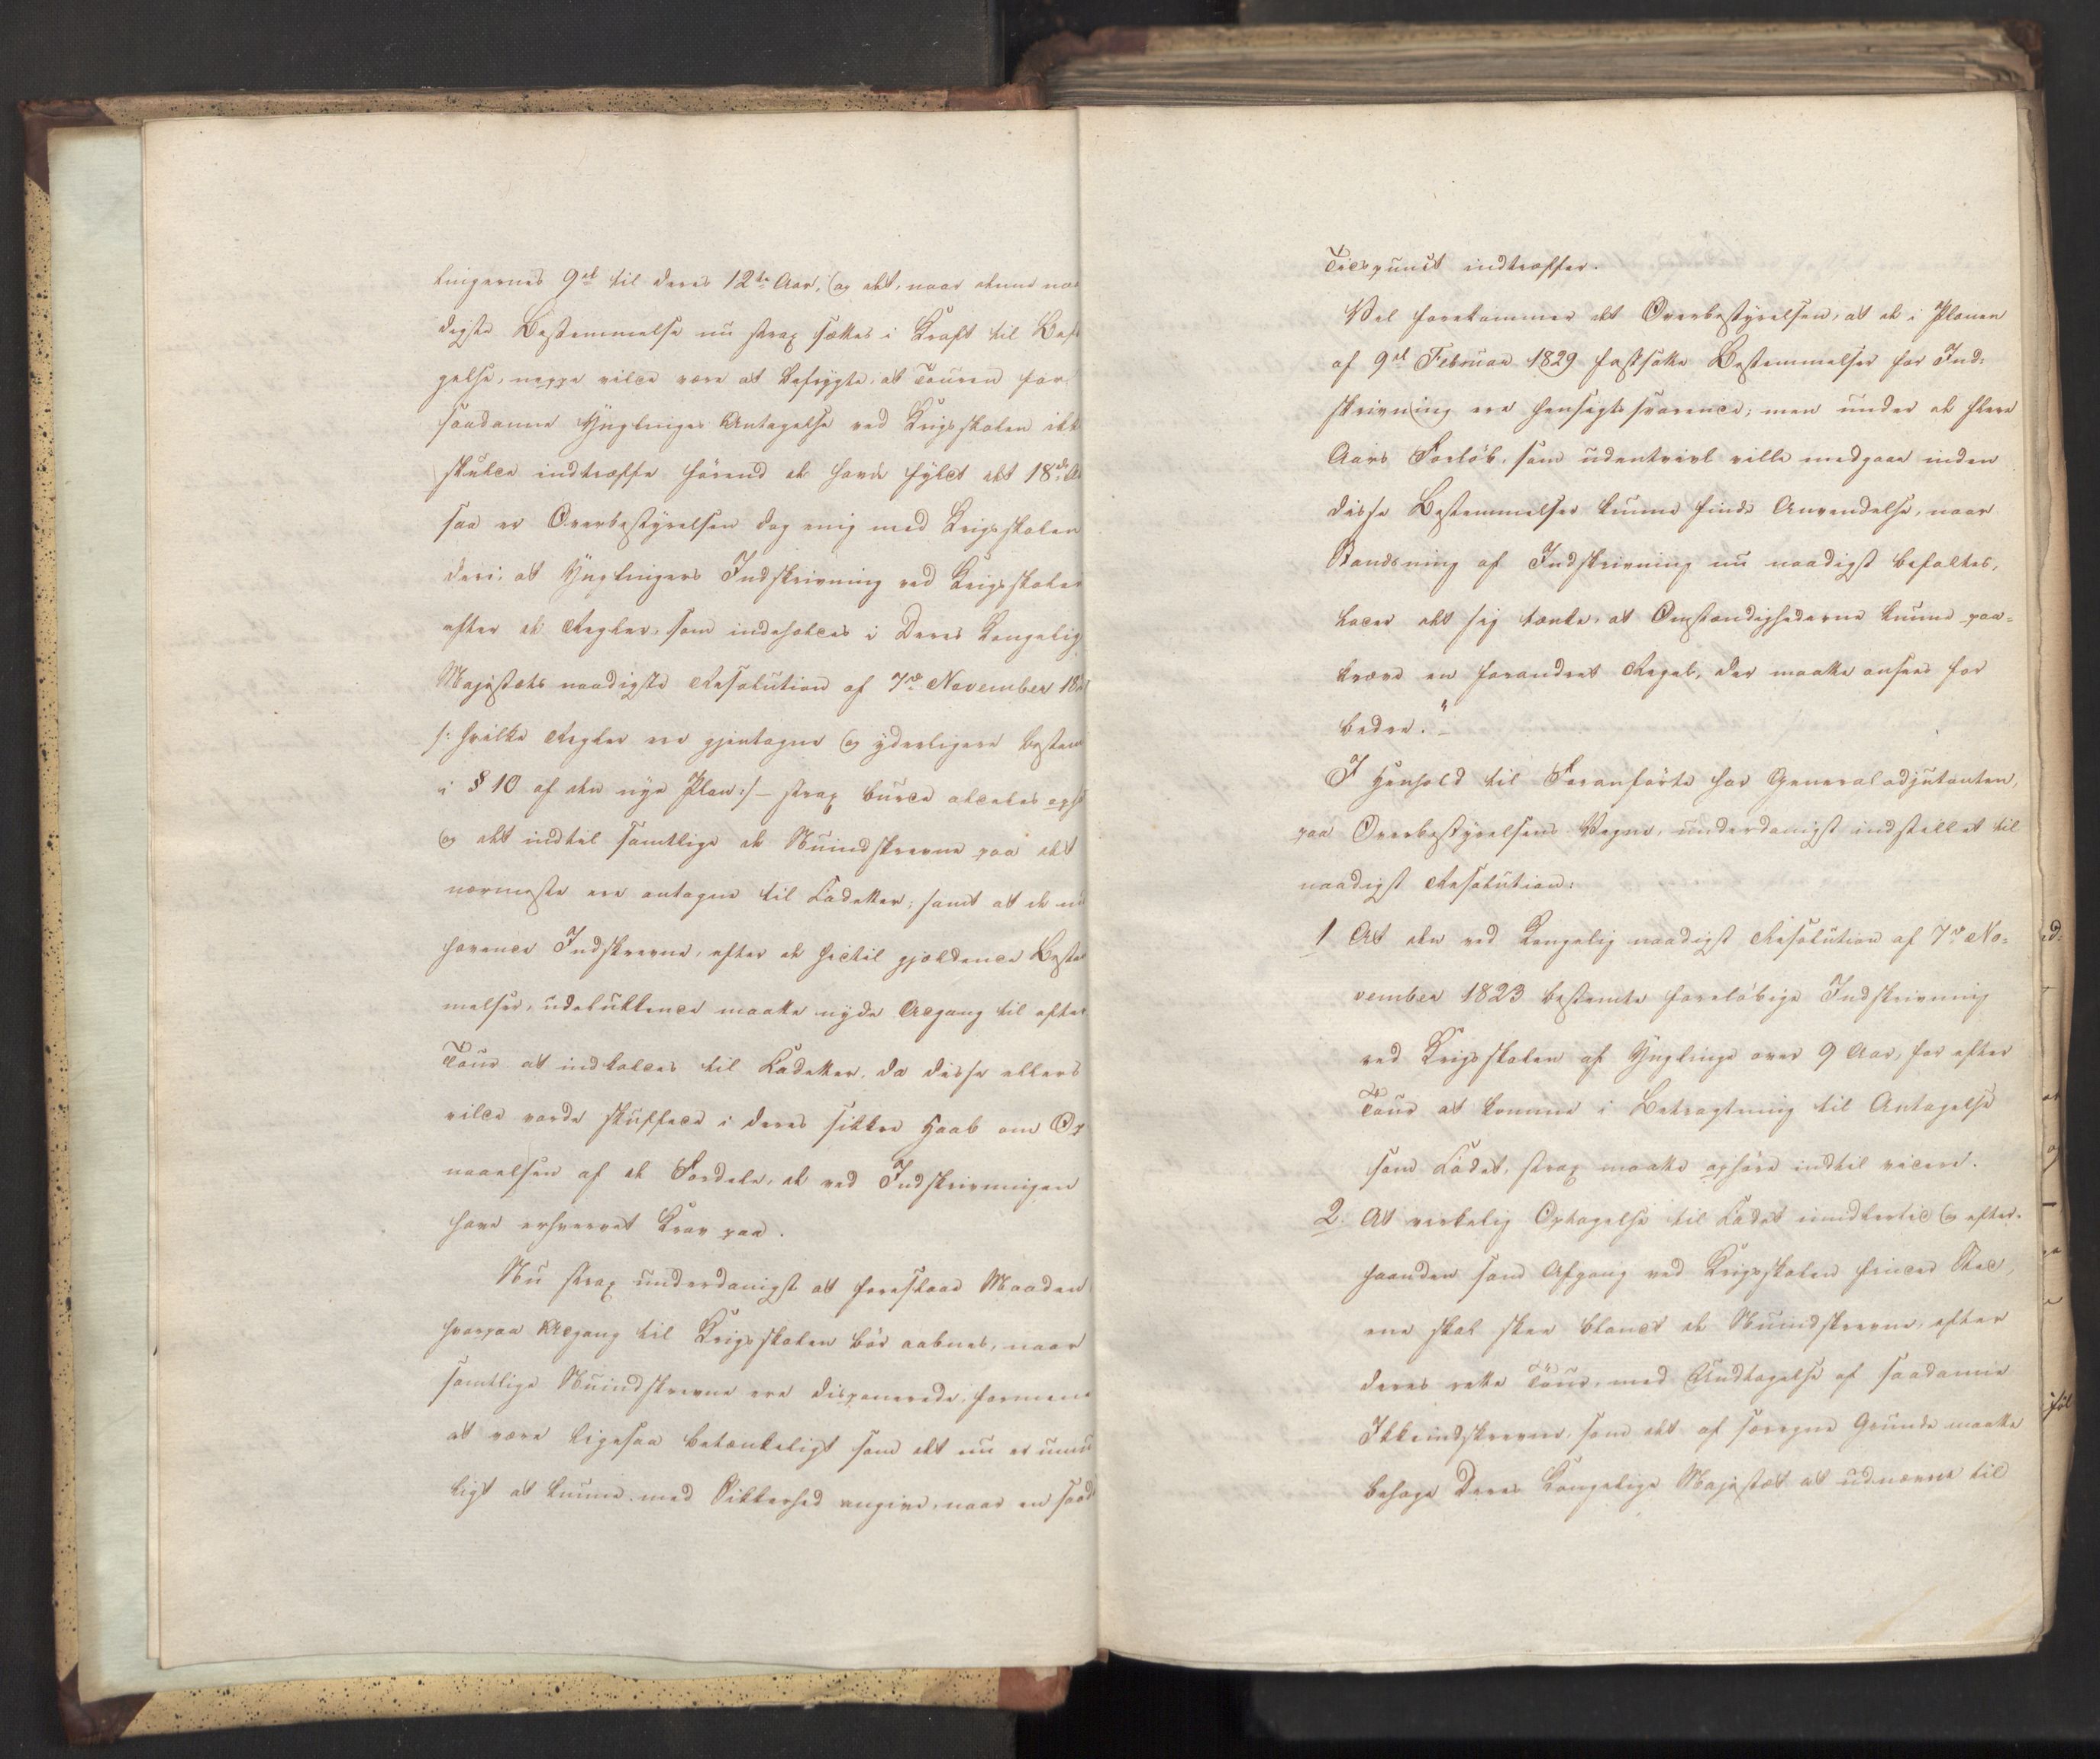 lingernes 9de til deres 12te Aar, og det, naar denne naa
digste Bestemmelse nu strax sættes i Kraft til Best
gelse, neppe vilde være at befrygte, at Touren for
saadanne Ynglinges Antagelse ved Krigsskolen ikk
skulde indtræffe förend de havde fyldt det 18de A
saa er Overbestyrelsen dog enig med Krigsskolen
deri, at Ynglingers Indskrivning ved Krigsskolen
efter de Regler, som indeholdes i Deres Kongelig
Majestæts naadigste Resolution af 7de November 182
/: hvilke Regler ere gjentagne og yderligere bestem
i § 10 af den nye Plan :/ – strax burde aldeles oph
og det indtil samtlige de Nuindskrevne paa det
nærmeste ere antagne til Cadetter; samt at de nu
havende Indskrevne, efter de hidtil gjældende Beste
melser, udelukkende maatte nyde Adgang til efter
Tour at indkaldes til Cadetter, da disse ellers
vilde vorde skuffede i deres sikkre Haab om Op
naaelsen af de Fordele, de ved Indskrivningen
have erhvervet Krav paa.
Nu strax underdanigst at foreslaae Maaden
hvorpaa Adgang til Krigsskolen bör aabnes, naar
samtlige Nuindskrevne ere disponerede, formene
at være ligesaa betænkeligt som det nu er umu
ligt at kunne med Sikkerhed angive, naar en saad
Tidspunct indtræffer.
Vel forekommer det Overbestyrelsen, at de i Planen
af 9de Februar 1829 fastsatte Bestemmelser for Ind=
skrivning ere hensigtssvarende; men under de flere
Aars Forlöb, som udentvivl ville medgaae inden
disse Bestemmelser kunne finde Anvendelse, naar
Standsning af Indskrivning nu naadigst befaltes,
lader det sig tænke, at Omstændighederne kunne paa=
kræve en forandret Regel, der maatte ansees for
bedre."
I Henhold til Foranförte har Generaladjutanten,
paa Overbestyrelsens Vegne, underdanigst indstillet til
naadigst Resolution:
1 At den ved Kongelig naadigst Resolution af 7de No=
vember 1823 bestemte foreløbige Indskrivning
ved Krigsskolen af Ynglinge over 9 Aar, for efter
Tour at komme i Betragtning til Antagelse
som Cadet, strax maatte ophöre indtil videre.
2. At virkelig Optagelse til Cadet imidlertid og efter=
haanden som Afgang ved Krigsskolen finder Sted,
ene skal skee blandt de Nuindskrevne, efter
deres rette Tour, med Undtagelse af saadanne
Ikkeindskrevne, som det af særegne Grunde maatte
behage Deres Kongelige Majestæt at udnævne til